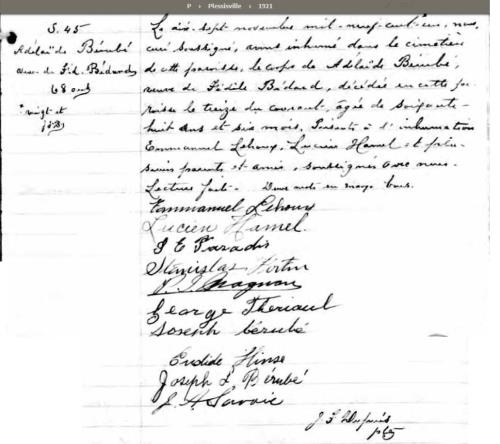 P › Plessisville › 1921
S. 45
Adélaïde Bérubé
veuve de Fid. Bédard
68 ans
* vingt et
Le dix-sept novembre mil-neuf-cent-un, nous
curé soussigné, avons inhumé dans le cimetière
de cette paroisse, le corps de Adélaïde Bérubé,
veuve de Fidèle Bédard, décédée en cette pa-
roisse le treize du courant, âgée de soixante
huit ans et six mois. Présents à l'inhumation
Emmanuel Lehoux, Lucien Hamel et plu-
sieurs parents et amis, soussignés avec nous.
Lecture faite. Deux mots en marge bons.
Emmanuel Lehoux
Lucien Hamel.
J E Paradis
Stanislas Fortin
P. J. Magnan
George Theriault
Joseph bérubé
Evelide Hinse
Joseph L. Bérubé
J. H. Savoie
J. E. Dupuis
ptre